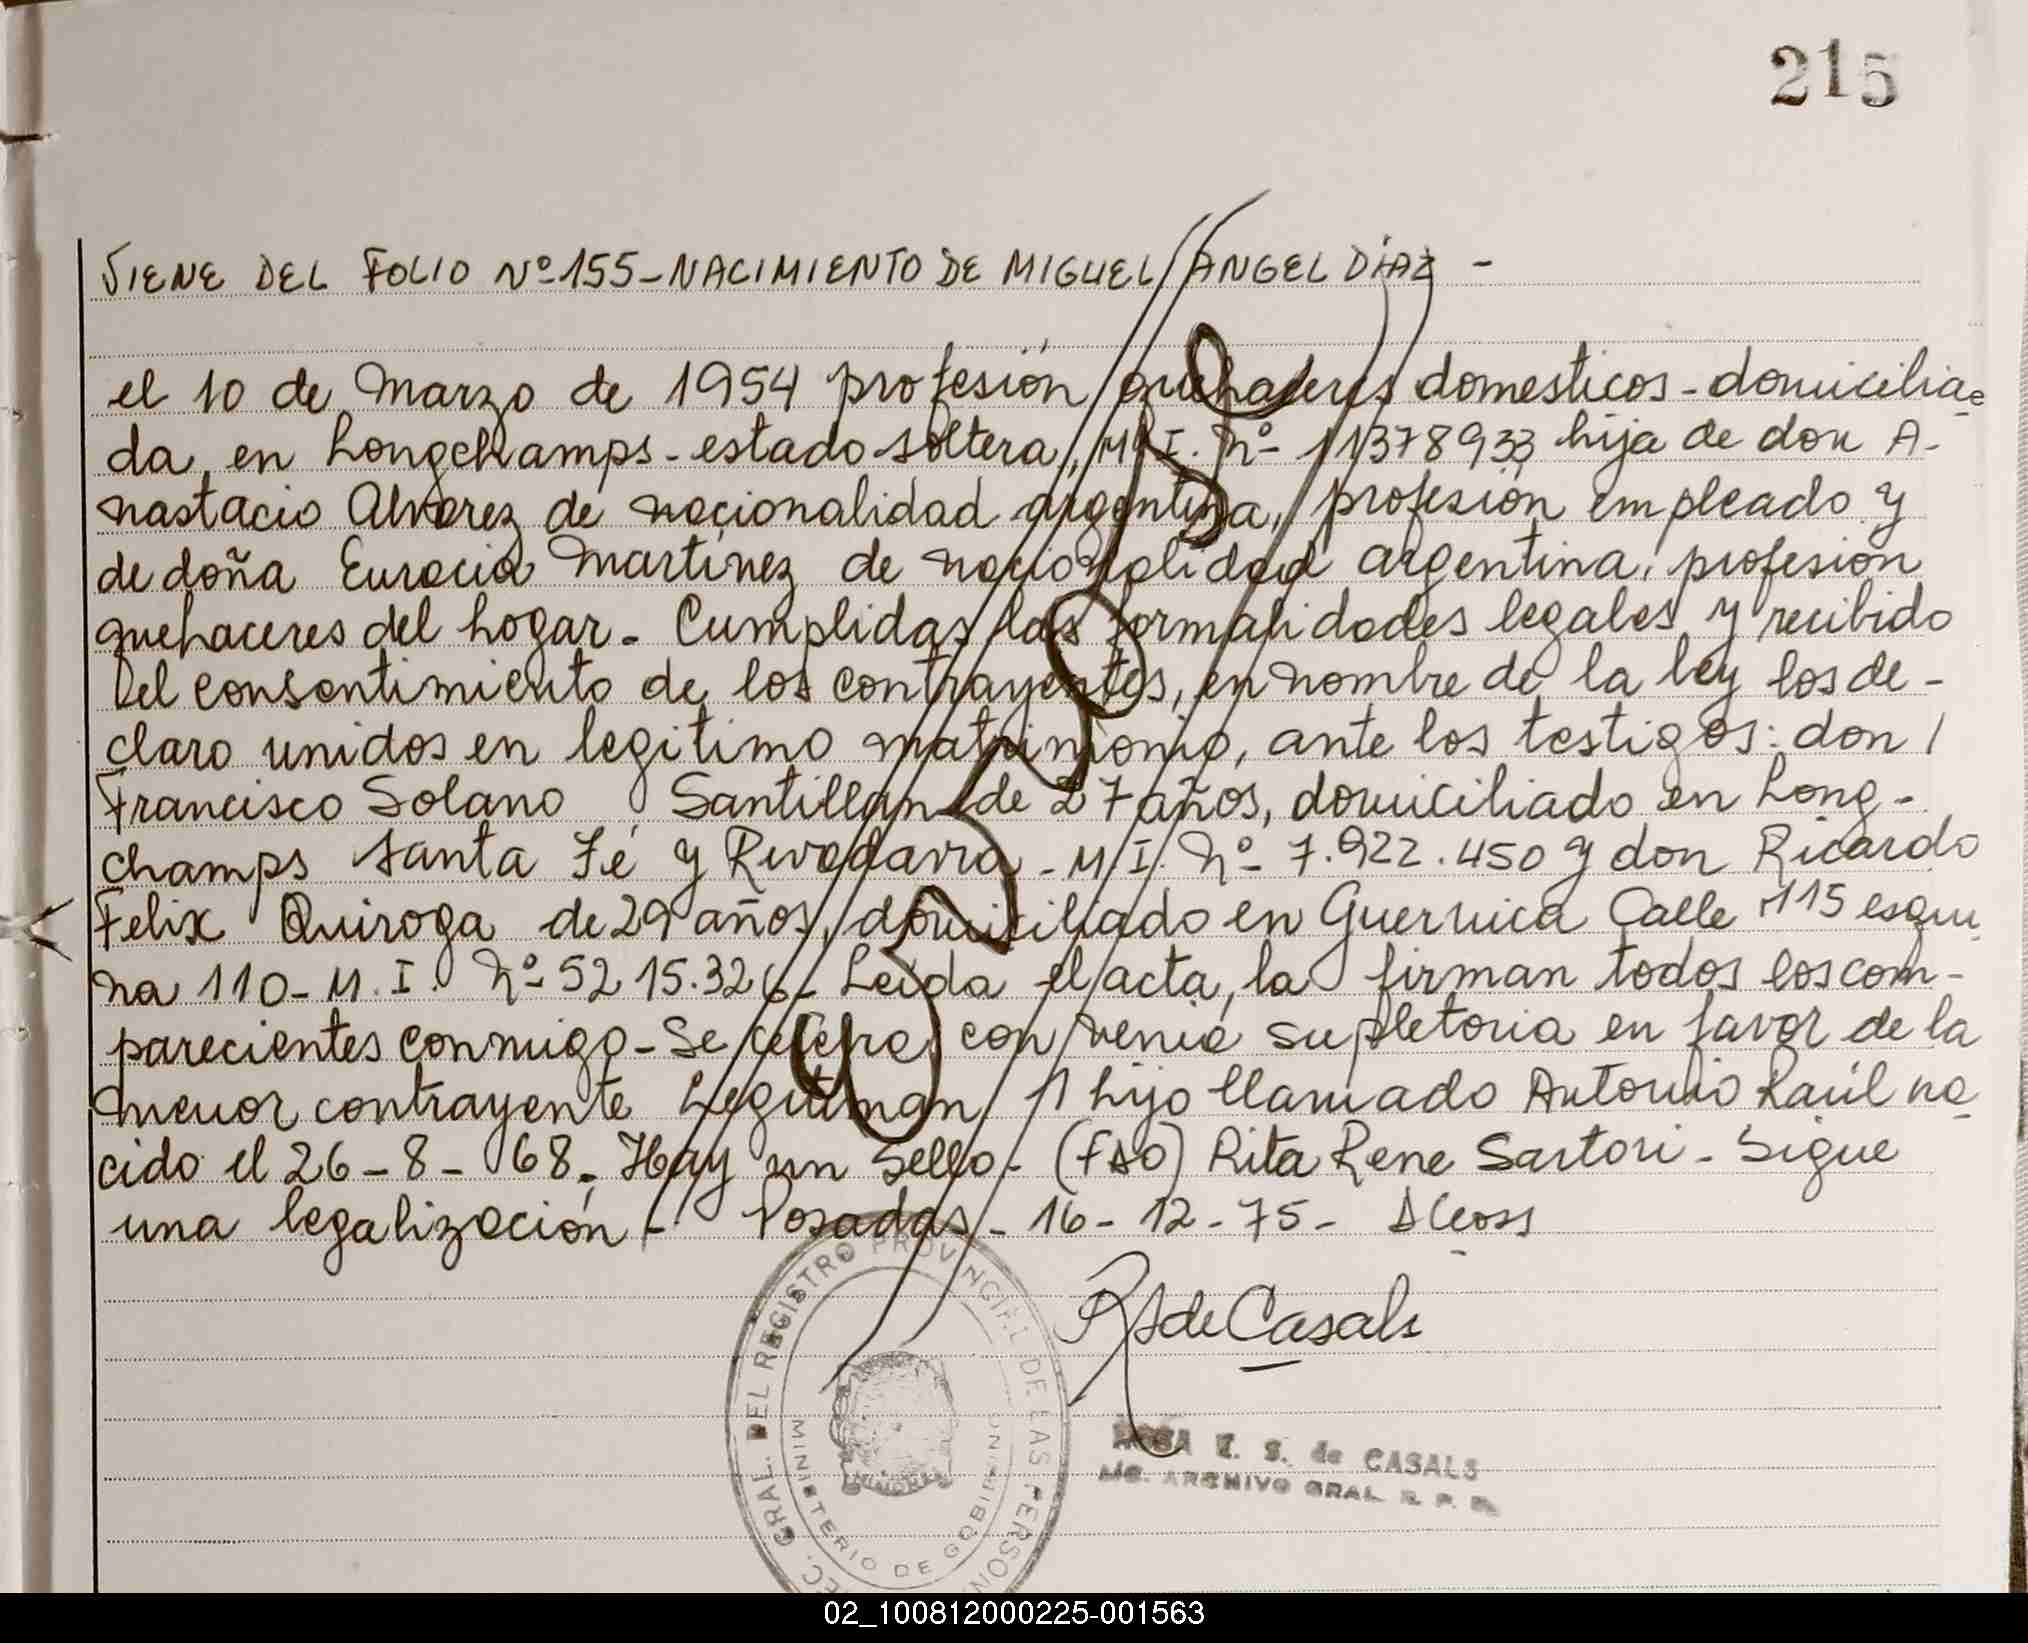 215
SIENE DEL FOLIO Nº 155-NACIMIENTO DE MIGUEL ANGEL DIAZ -
el 10 de Marzo de 1954 profesión quehaceres domesticos - domicilia=
da en Longchamps - estado soltera, M. I. Nº 11378933 hija de don A-
nastacio Alvarez de nacionalidad argentina, profesión empleado y
de doña Euracia Martinez de nacionalidad argentina, profesión
quehaceres del hogar - Cumplidas las formalidades legales y recibido
del consentimiento de los contrayentes, en nombre de la ley los de-
claro unidos en legitimo matrimonio, ante los testigos: don /
Francisco Solano Santillan de 27 años, domiciliado en Long-
champs Santa Fé y Rivadavia - M. I. Nº 7.922.450 y don Ricardo
Felix Quiroga de 29 años, domiciliado en Guernica Calle 115 esqui
na 110 - M. I. Nº 5215.326 - Leida el acta, la firman todos los com-
parecientes conmigo - Se celebra con venia supletoria en favor de la
menor contrayente Legitiman 1 hijo llamado Antonio Raúl na
cido el 26-8-68 - Hay un sello - (FDO) Rita Rene Sartori - Sigue
una legalización - Posadas - 16-12-75 -
R S de Casals
E. S. de CASALS
ARCHIVO GRAL. R. P.
GRAL. DEL REGISTRO PROVINCIAL DE LAS PERSON
MINISTERIO DE GOBIERNO
02_100812000225-001563